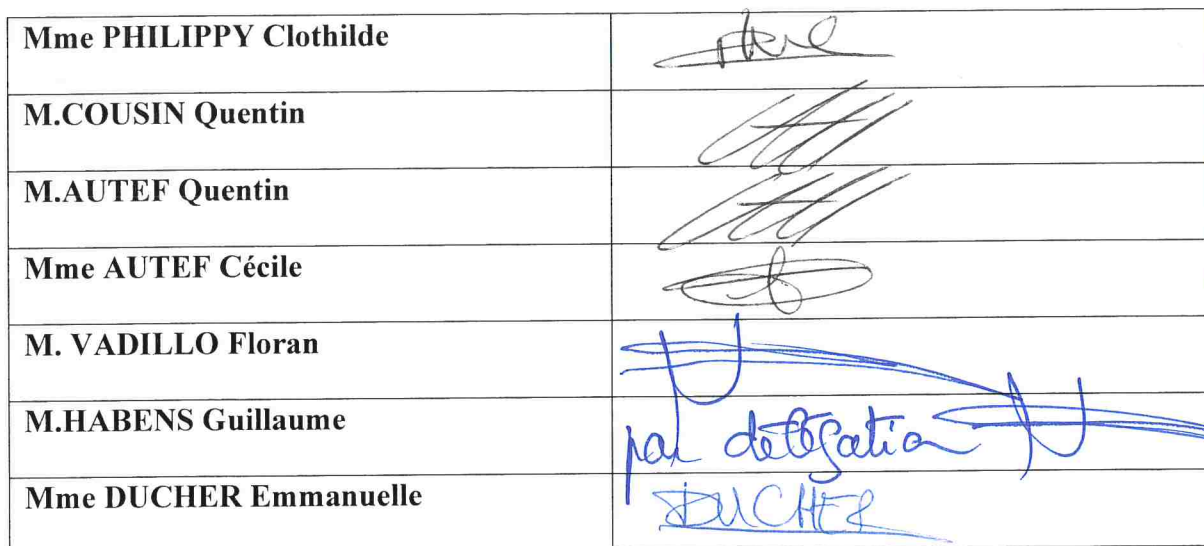 Mme PHILIPPY Clothilde
M.COUSIN Quentin
M.AUTEF Quentin
Mme AUTEF Cécile
M. VADILLO Floran
M.HABENS Guillaume
par délégation
Mme DUCHER Emmanuelle
DUCHER